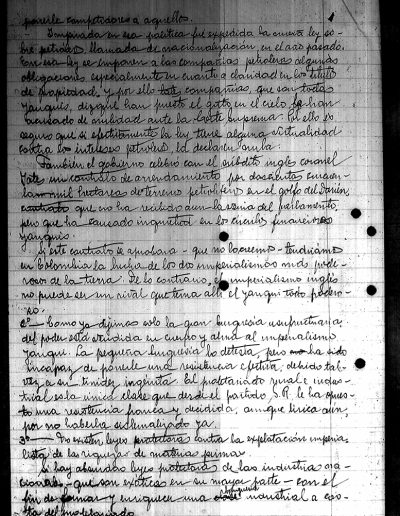 ponerle competidores a aquellos.
Inspirada en esa política fué expedida la nueva ley so-
bre petróleos llamada de nacionalización en el año pasado.
Con esa ley se imponen a las compañías petroleras algunas
obligaciones, especialmente en cuanto a claridad en los títulos
de propiedad, y por ello las compañías, que son todas
yanquis, dizque han puesto el grito en el cielo y han
acusado de nulidad ante la Corte Suprema. Por ello es
seguro que si efectivamente la ley tiene alguna virtualidad
contra los intereses petroleros, la declaren nula.
También el gobierno celebró con el súbdito inglés coronel
Yate un contrato de arrendamiento por doscientas cincuen-
ta mil hectáreas de terreno petrolífero en el golfo del Darién,
contrato que no ha recibido aún la venia del parlamento,
pero que ha causado inquietud en los círculos financieros
yanquis.
Si este contrato se aprobara - que no lo creemos - tendríamos
en Colombia la lucha de los dos imperialismos más pode-
rosos de la tierra. De lo contrario, el imperialismo inglés
no puede ser un rival que tema allí el yanqui todo podero-
so.
2º — Como ya dijimos solo la gran burguesía usufructuaria
del poder está vendida en cuerpo y alma al imperialismo
yanqui. La pequeña burguesía lo detesta, pero ha sido
incapaz de ponerle una resistencia efectiva, debido tal-
vez a su timidez ingénita. El proletariado rural e indus-
trial es la única clase que desde el partido S.R. le ha opues-
to una resistencia franca y decidida, aunque lírica aún,
por no haberla sistematizado ya.
3º — No existen leyes protectoras contra la explotación imperia-
lista de las riquezas de materias primas.
Sí hay abundantes leyes protectoras de las industrias na-
cionales - que son exóticas en su mayor parte - con el
fin de formar y enriquecer una burguesía industrial a cos-
ta del proletariado